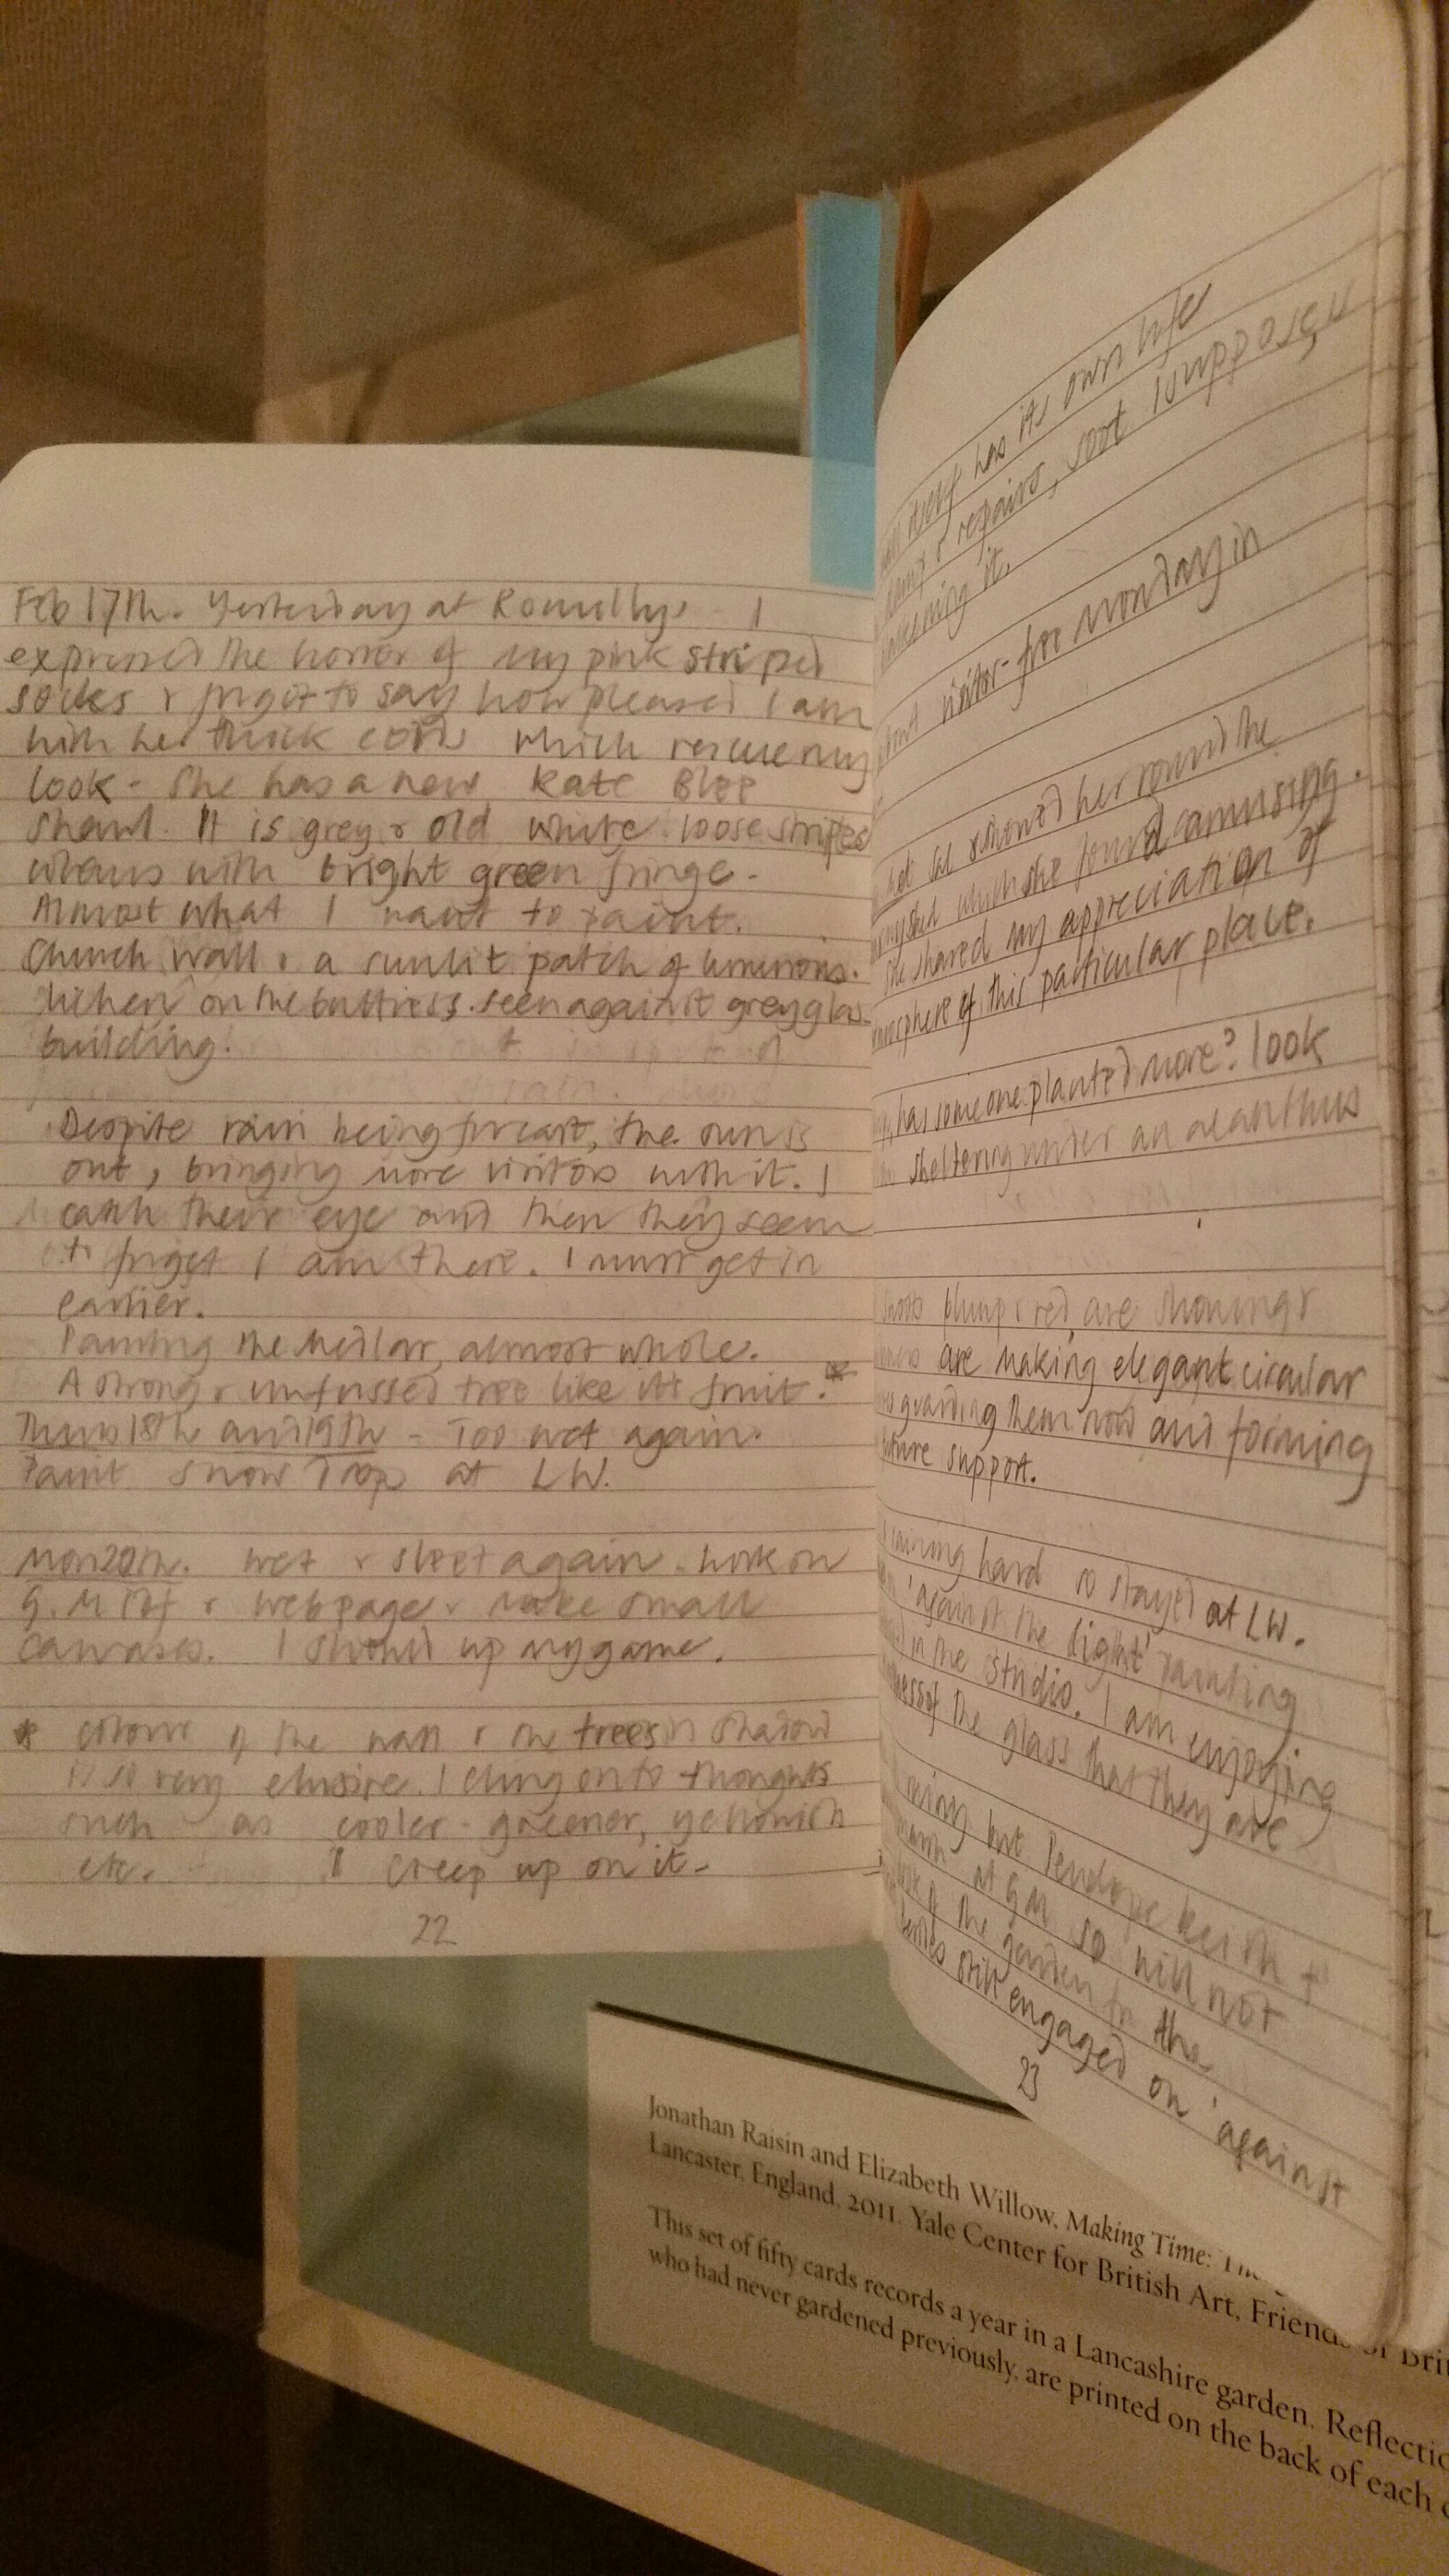 Feb 17th. Yesterday at Romilly's - I
expressed the horror of my pink striped
socks & forgot to say how pleased I am
with her thick which rescue my
look - She has a new Kate Blee
shawl. It is grey & old white loose stripes
with bright green fringe.
Almost what I want to paint.
Church wall & a sunlit patch of luminous
lichen on the buttress seen against grey glass
building.
Despite rain being forecast, the sun is
out, bringing more visitors with it. I
catch their eye and then they seem
to forget I am there. I must get in
earlier.
Painting the Medlar, almost whole.
A strong & unfussed tree like its fruit. *
Thurs 18th and 19th - Too wet again.
Paint Snow Drop at LW.
Mon 20th. Wet & sleet again. Work on
G.M & webpage & make small
canvases. I should up my game.
* Colour of the wall & the trees in shadow
is so very elusive. I cling on to thoughts
such as cooler - greener, yellowish
etc. I creep up on it.
22
itself has its own life
& repairs, soot I suppose
it.
visitor-free Monday in
& showed her round the
which she found amusing.
She shared my appreciation of
atmosphere of this particular place.
has someone planted more? look
sheltering under an acanthus
shoots plump & red are showing &
are making elegant circular
guarding them now and forming
future support.
raining hard so stayed at LW.
'against the light' painting
in the studio. I am enjoying
of the glass that they are
but Penelope Keith
at GM so will not
the garden for the
still engaged on 'against
23
Jonathan Raisin and Elizabeth Willow, Making Time:
Lancaster, England, 2011. Yale Center for British Art, Friends of Brit
This set of fifty cards records a year in a Lancashire garden. Reflectio
who had never gardened previously, are printed on the back of each